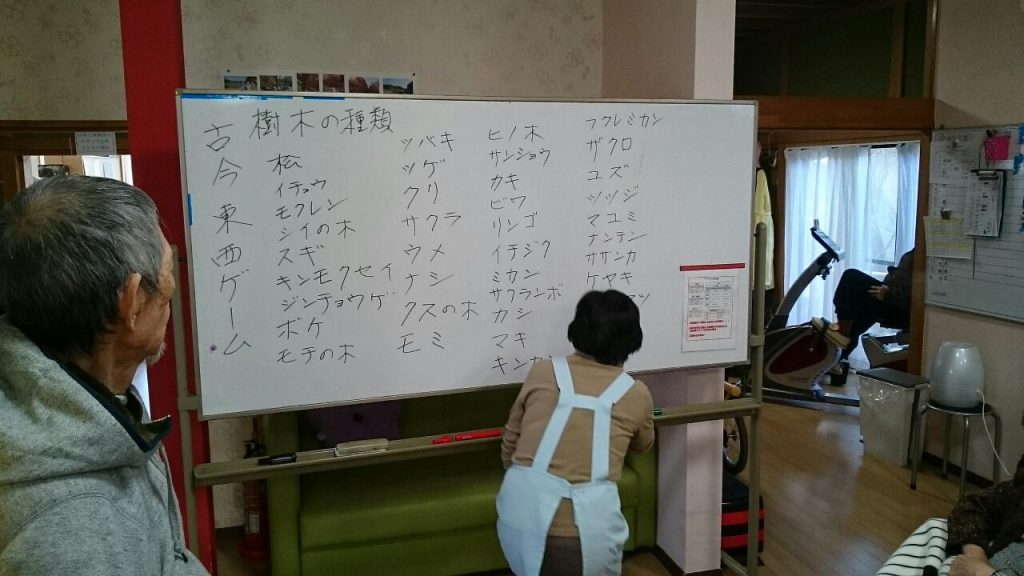 古今東西ゲーム
樹木の種類
松
イチョウ
モクレン
シイの木
スギ
キンモクセイ
ジンチョウゲ
ボケ
モチの木
ツバキ
ツゲ
クリ
サクラ
ウメ
ナシ
クスの木
モミ
ヒノ木
サンショウ
カキ
ビワ
リンゴ
イチジク
ミカン
サクランボ
カシ
マキ
キンカ
フクレミカン
ザクロ
ユズ
ツツジ
マユミ
ナンテン
ササンカ
ケヤキ